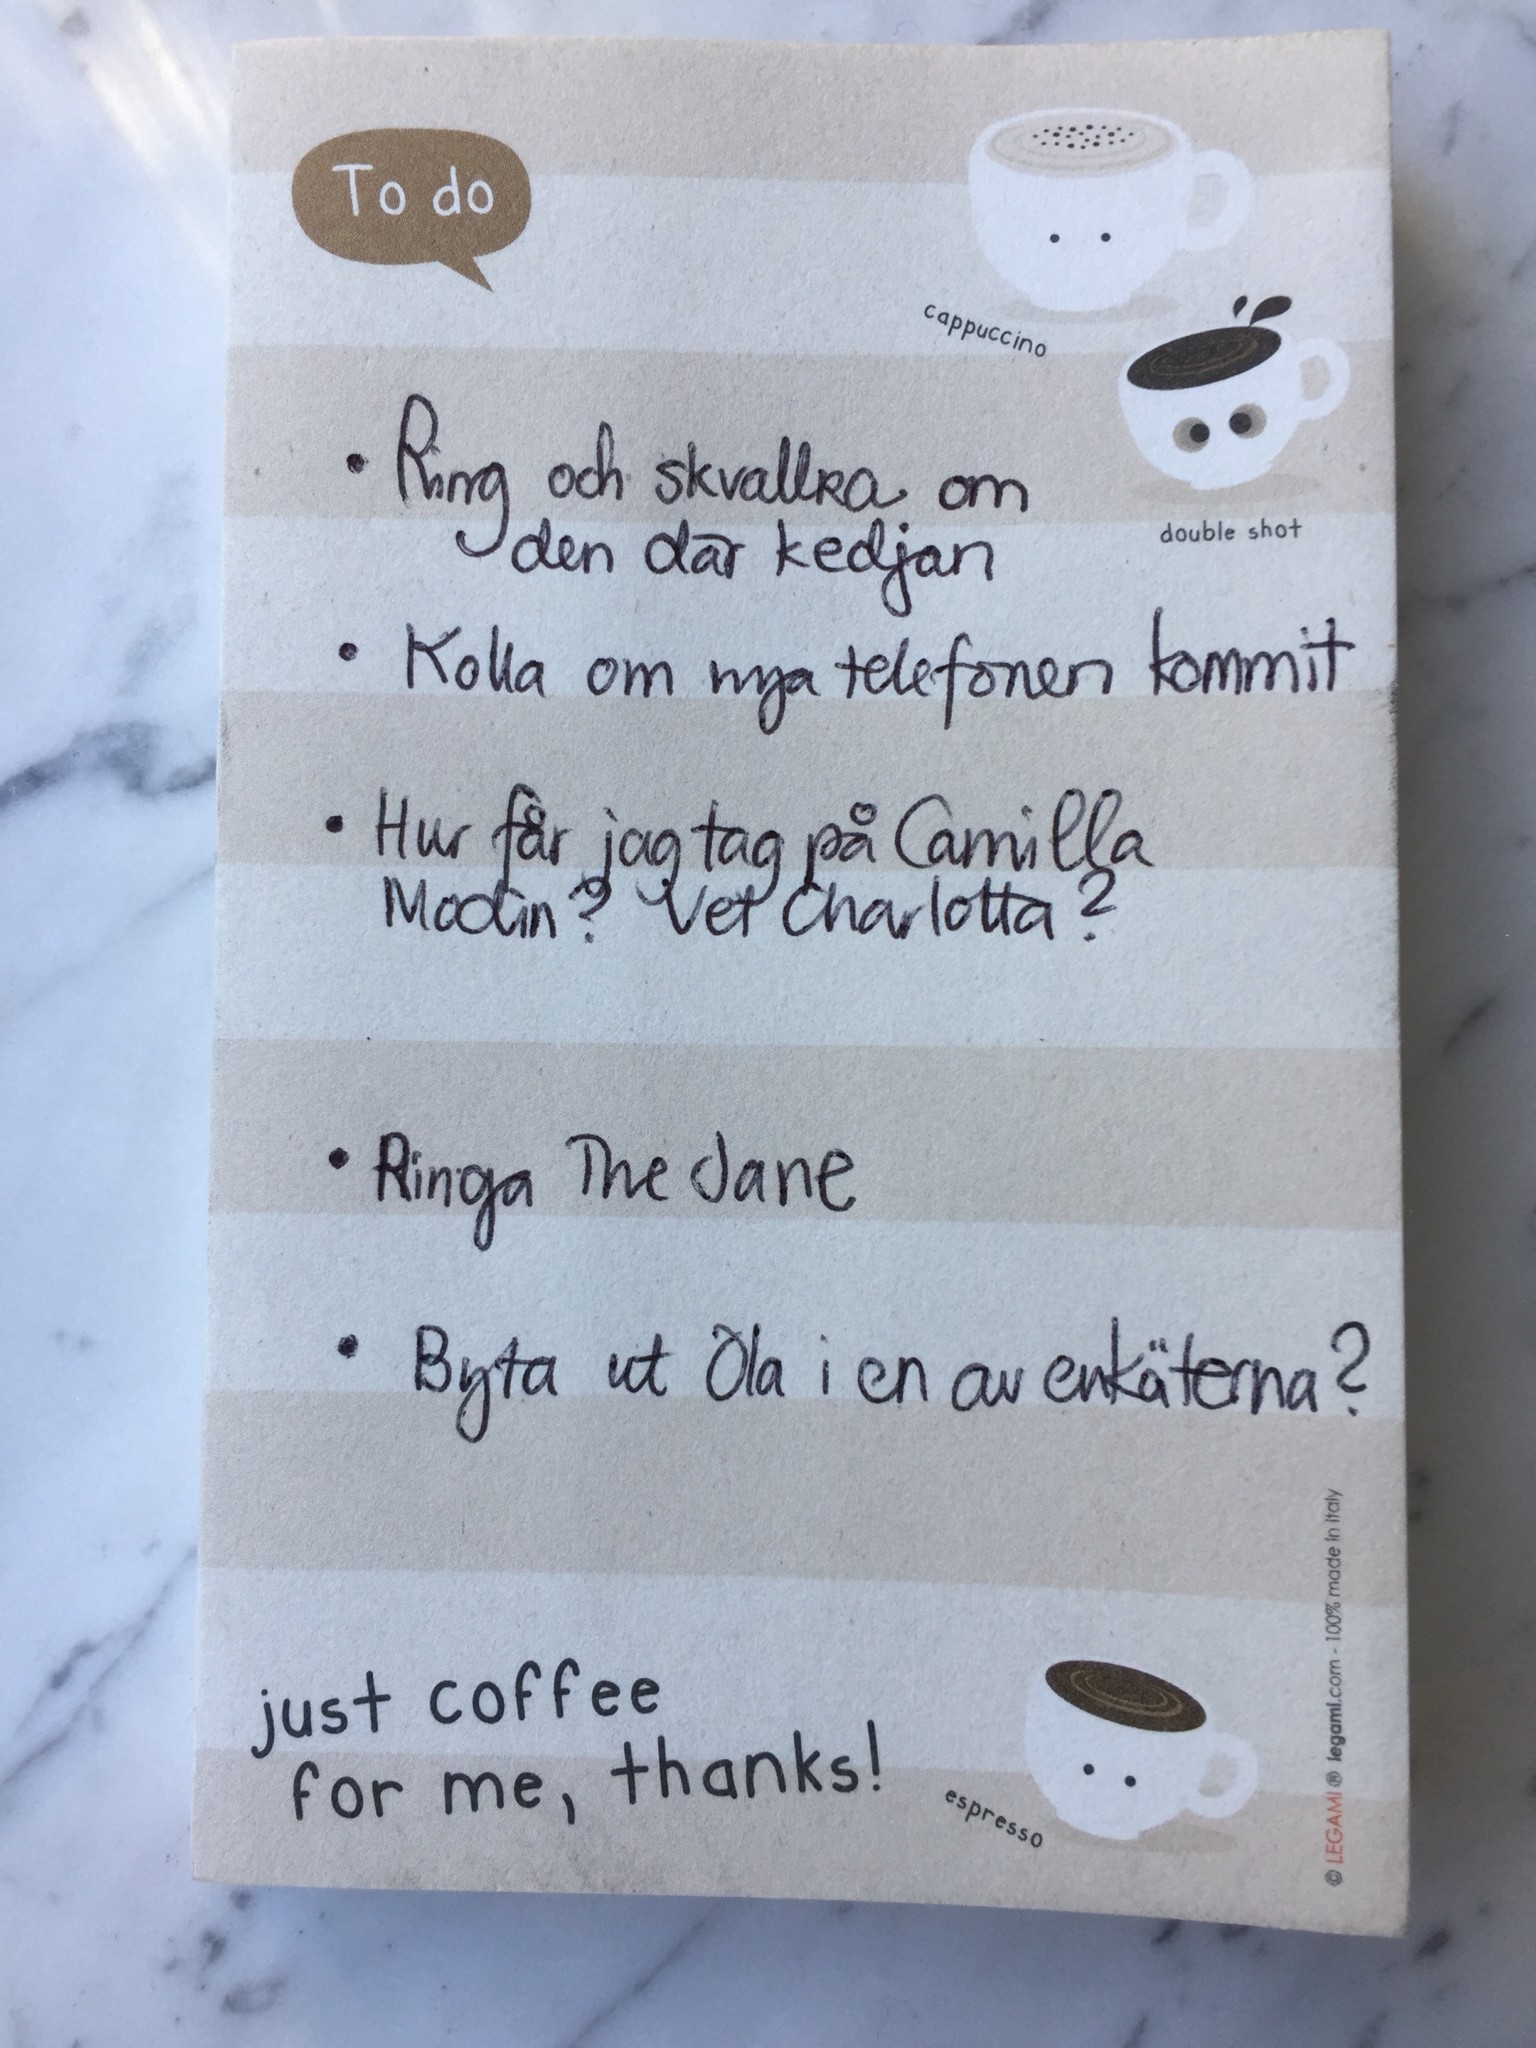 To do
cappuccino
double shot
• Ring och skvallra om
den där kedjan
• Kolla om nya telefonen kommit
• Hur får jag tag på Camilla
Modin? Vet Charlotta?
• Ringa The Jane
• Byta ut Ola i en av enkäterna?
just coffee
for me, thanks!
espresso
© LEGAMI® legami.com - 100% made in Italy